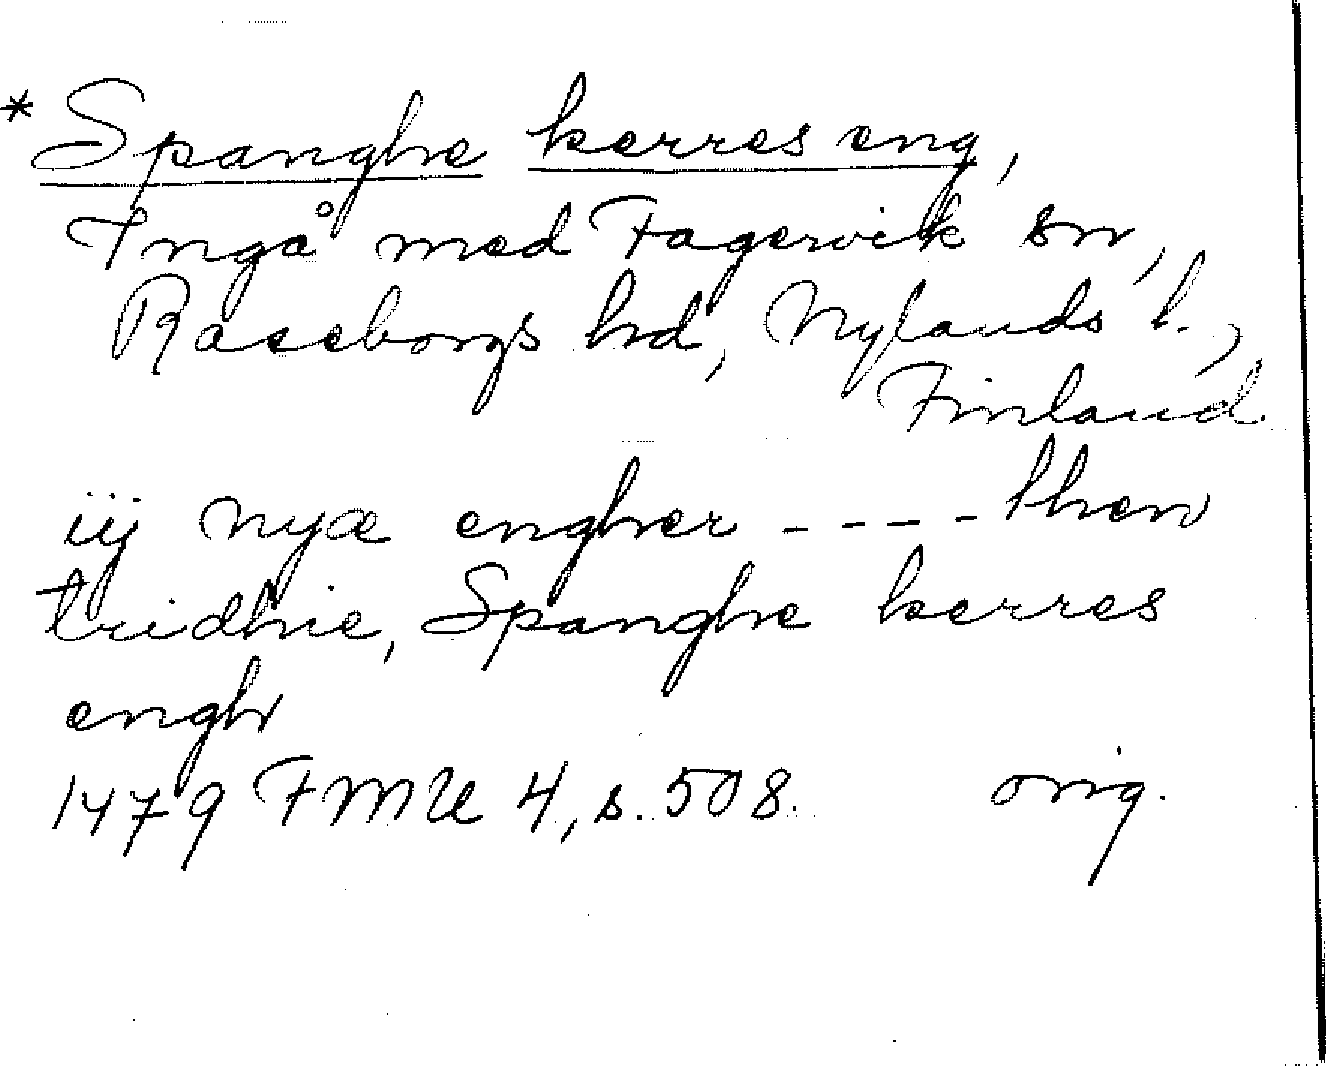 * Spanghe kerres eng,
Ingå med Fagervik sn,
Raseborgs hd, Nylands l.,
Finland.
iij nyæ engher - - - - then
tridhie, Spanghe kerres
engh
1479 FMU 4, s. 508. orig.